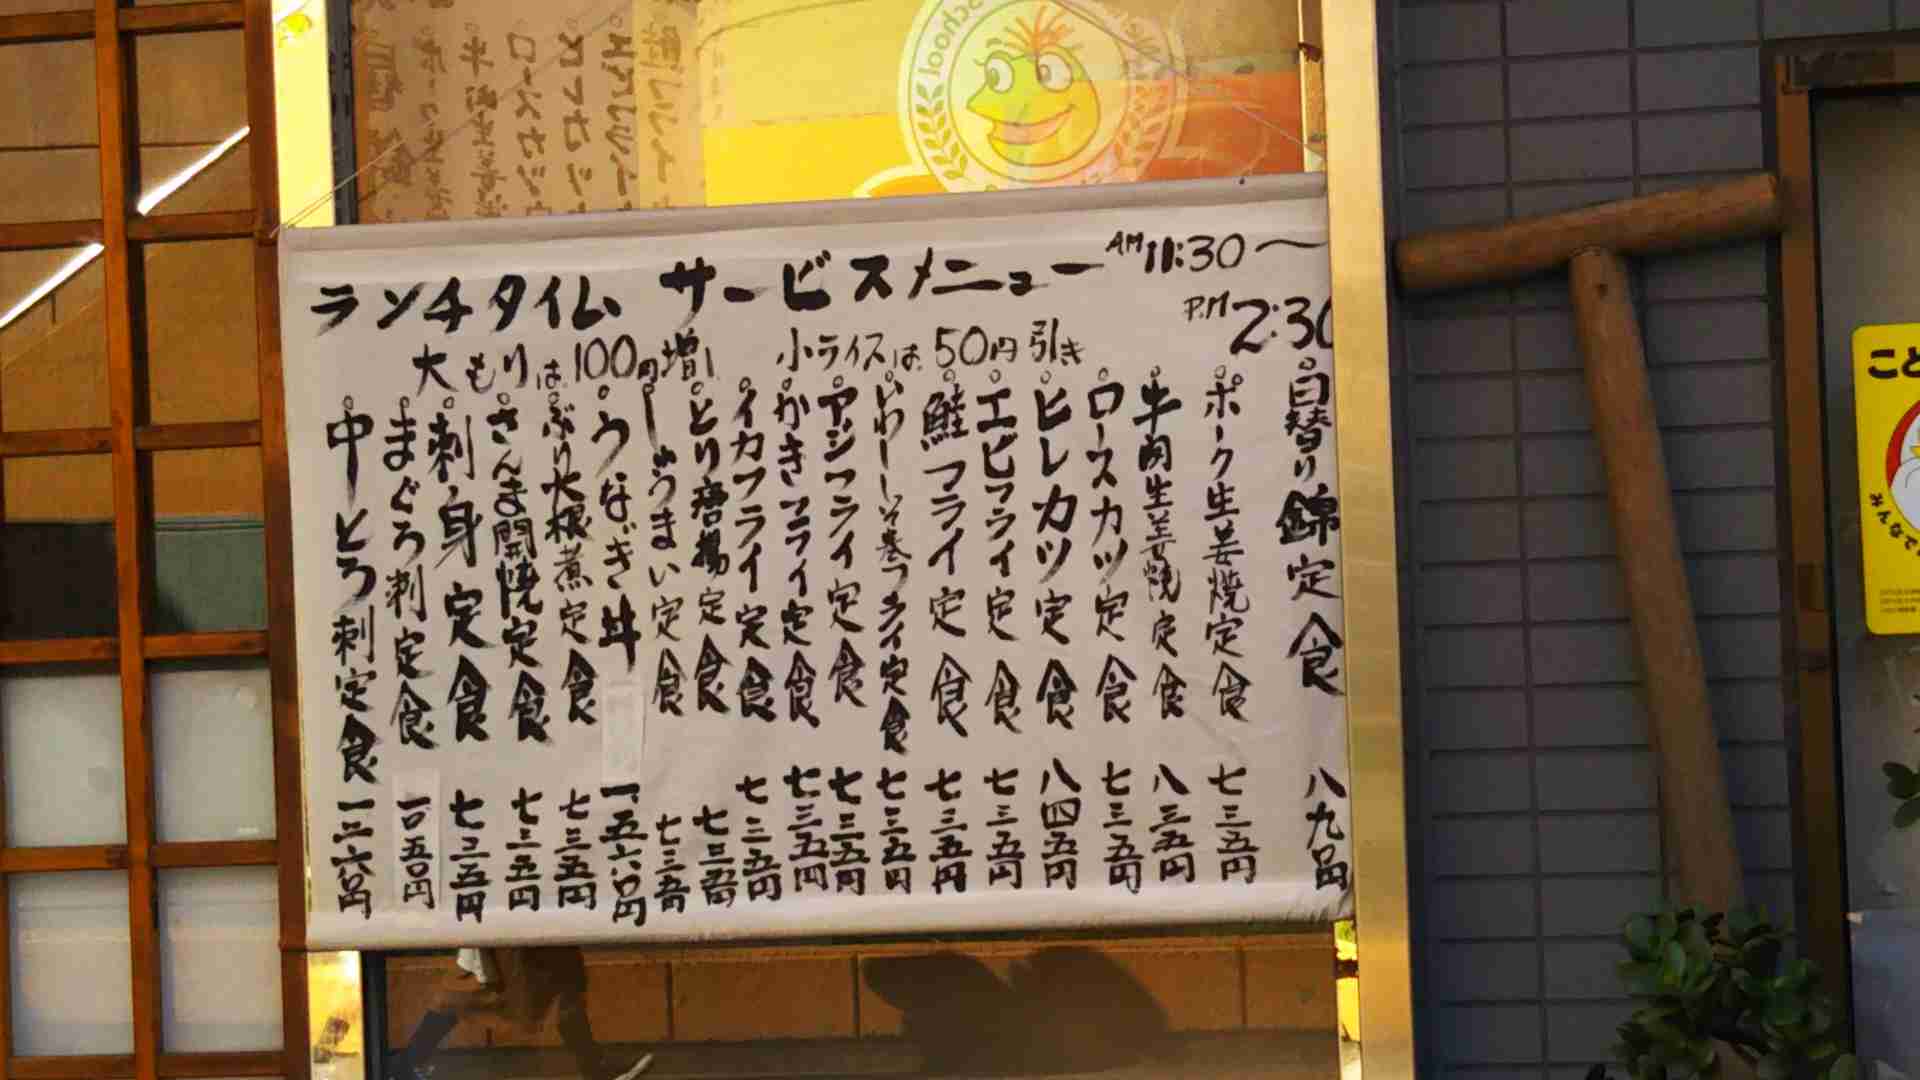 ランチタイム サービスメニュー AM 11:30〜
P.M 2:30
大もりは100円増し 小ライスは50円引き
日替り錦定食 八九〇円
ポーク生姜焼定食 七三五円
牛肉生姜焼定食 八三五円
ロースカツ定食 七三五円
ヒレカツ定食 八四五円
エビフライ定食 七三五円
鮭フライ定食 七三五円
いわしし巻フライ定食 七三五円
アジフライ定食 七三五円
かきフライ定食 七三五円
イカフライ定食 七三五円
とり唐揚定食 七三五円
しゅうまい定食 七三五円
うなぎ丼 一、五六〇円
ぶり大根煮定食 七三五円
さんま開焼定食 七三五円
刺身定食 七三五円
まぐろ刺定食 一〇五〇円
中とろ刺定食 一三六〇円
School